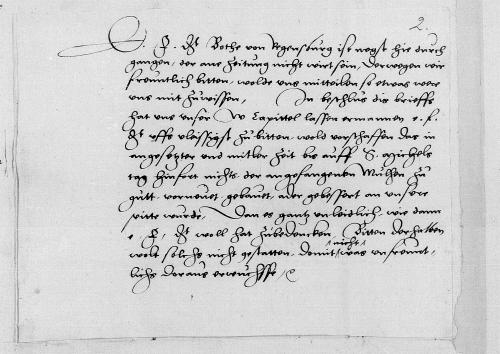 2.
E. F. G. Bothe von Regensburg ist negst hie durch
gangen, der ane Zeitung nicht wirt sein, Derwegen wir
freuntlich bitten, wolde uns mitteilen so etwas wer
uns mit zuwissen, In beschlus dis brieffs
hat uns unser W Capittel lassen ermannen e. f.
G. uffs vleissigst zubitten, wold verschaffen das in
angesetzter und mitler Zeit bis auff S. Michels
tag hinfort nichts der angefangenen Mulhen zu
gutt, vernewet gebauet, ader gebessert an unsere
seite wurde, Dan es gantz unleidlich, wie dann
e. F. G. woll hat zubedencken, Bitten derhalben
wolt solchs nicht gestatten, domit nicht was unfreunt-
lichs doraus erwuchsse,